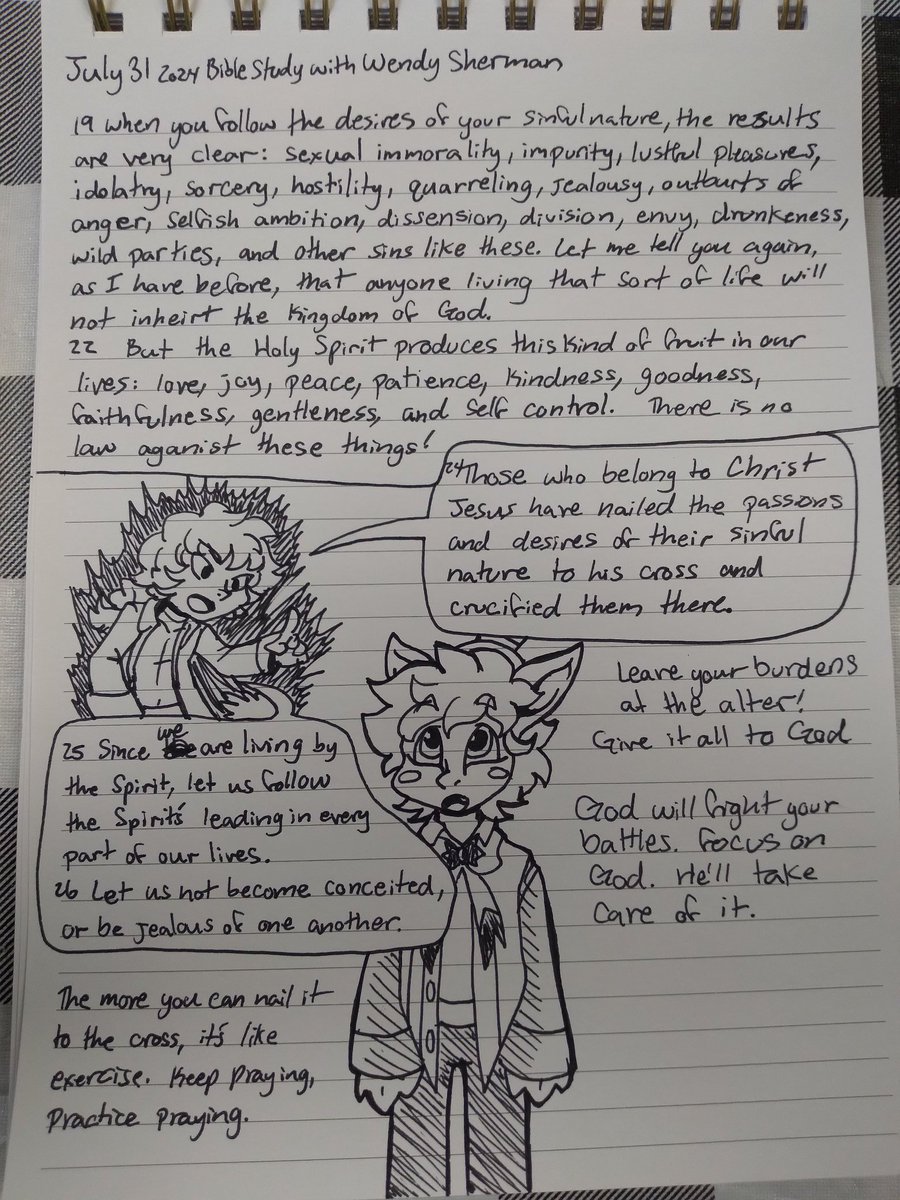 July 31 2024 Bible Study with Wendy Sherman
19 When you follow the desires of your sinful nature, the results
are very clear: sexual immorality, impurity, lustful pleasures,
idolatry, sorcery, hostility, quarreling, jealousy, outburts of
anger, selfish ambition, dissension, division, envy, drunkeness,
wild parties, and other sins like these. Let me tell you again,
as I have before, that anyone living that sort of life will
not inheirt the Kingdom of God.
22 But the Holy Spirit produces this kind of fruit in our
lives: love, joy, peace, patience, kindness, goodness,
faithfulness, gentleness, and self control. There is no
law aganist these things!
24 Those who belong to Christ
Jesus have nailed the passions
and desires of their sinful
nature to his cross and
crucified them there.
Leave your burdens
at the alter!
Give it all to God
25 Since we are living by
the Spirit, let us follow
the Spirit's leading in every
part of our lives.
26 Let us not become conceited,
or be jealous of one another.
God will fright your
battles. Focus on
God. He'll take
care of it.
The more you can nail it
to the cross, it's like
exercise. Keep praying,
Practice praying.